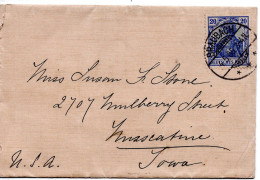 Miss Susan F. Stone
2707 Mulberry Street,
Muscatine
U.S.A. Iowa.
20 20